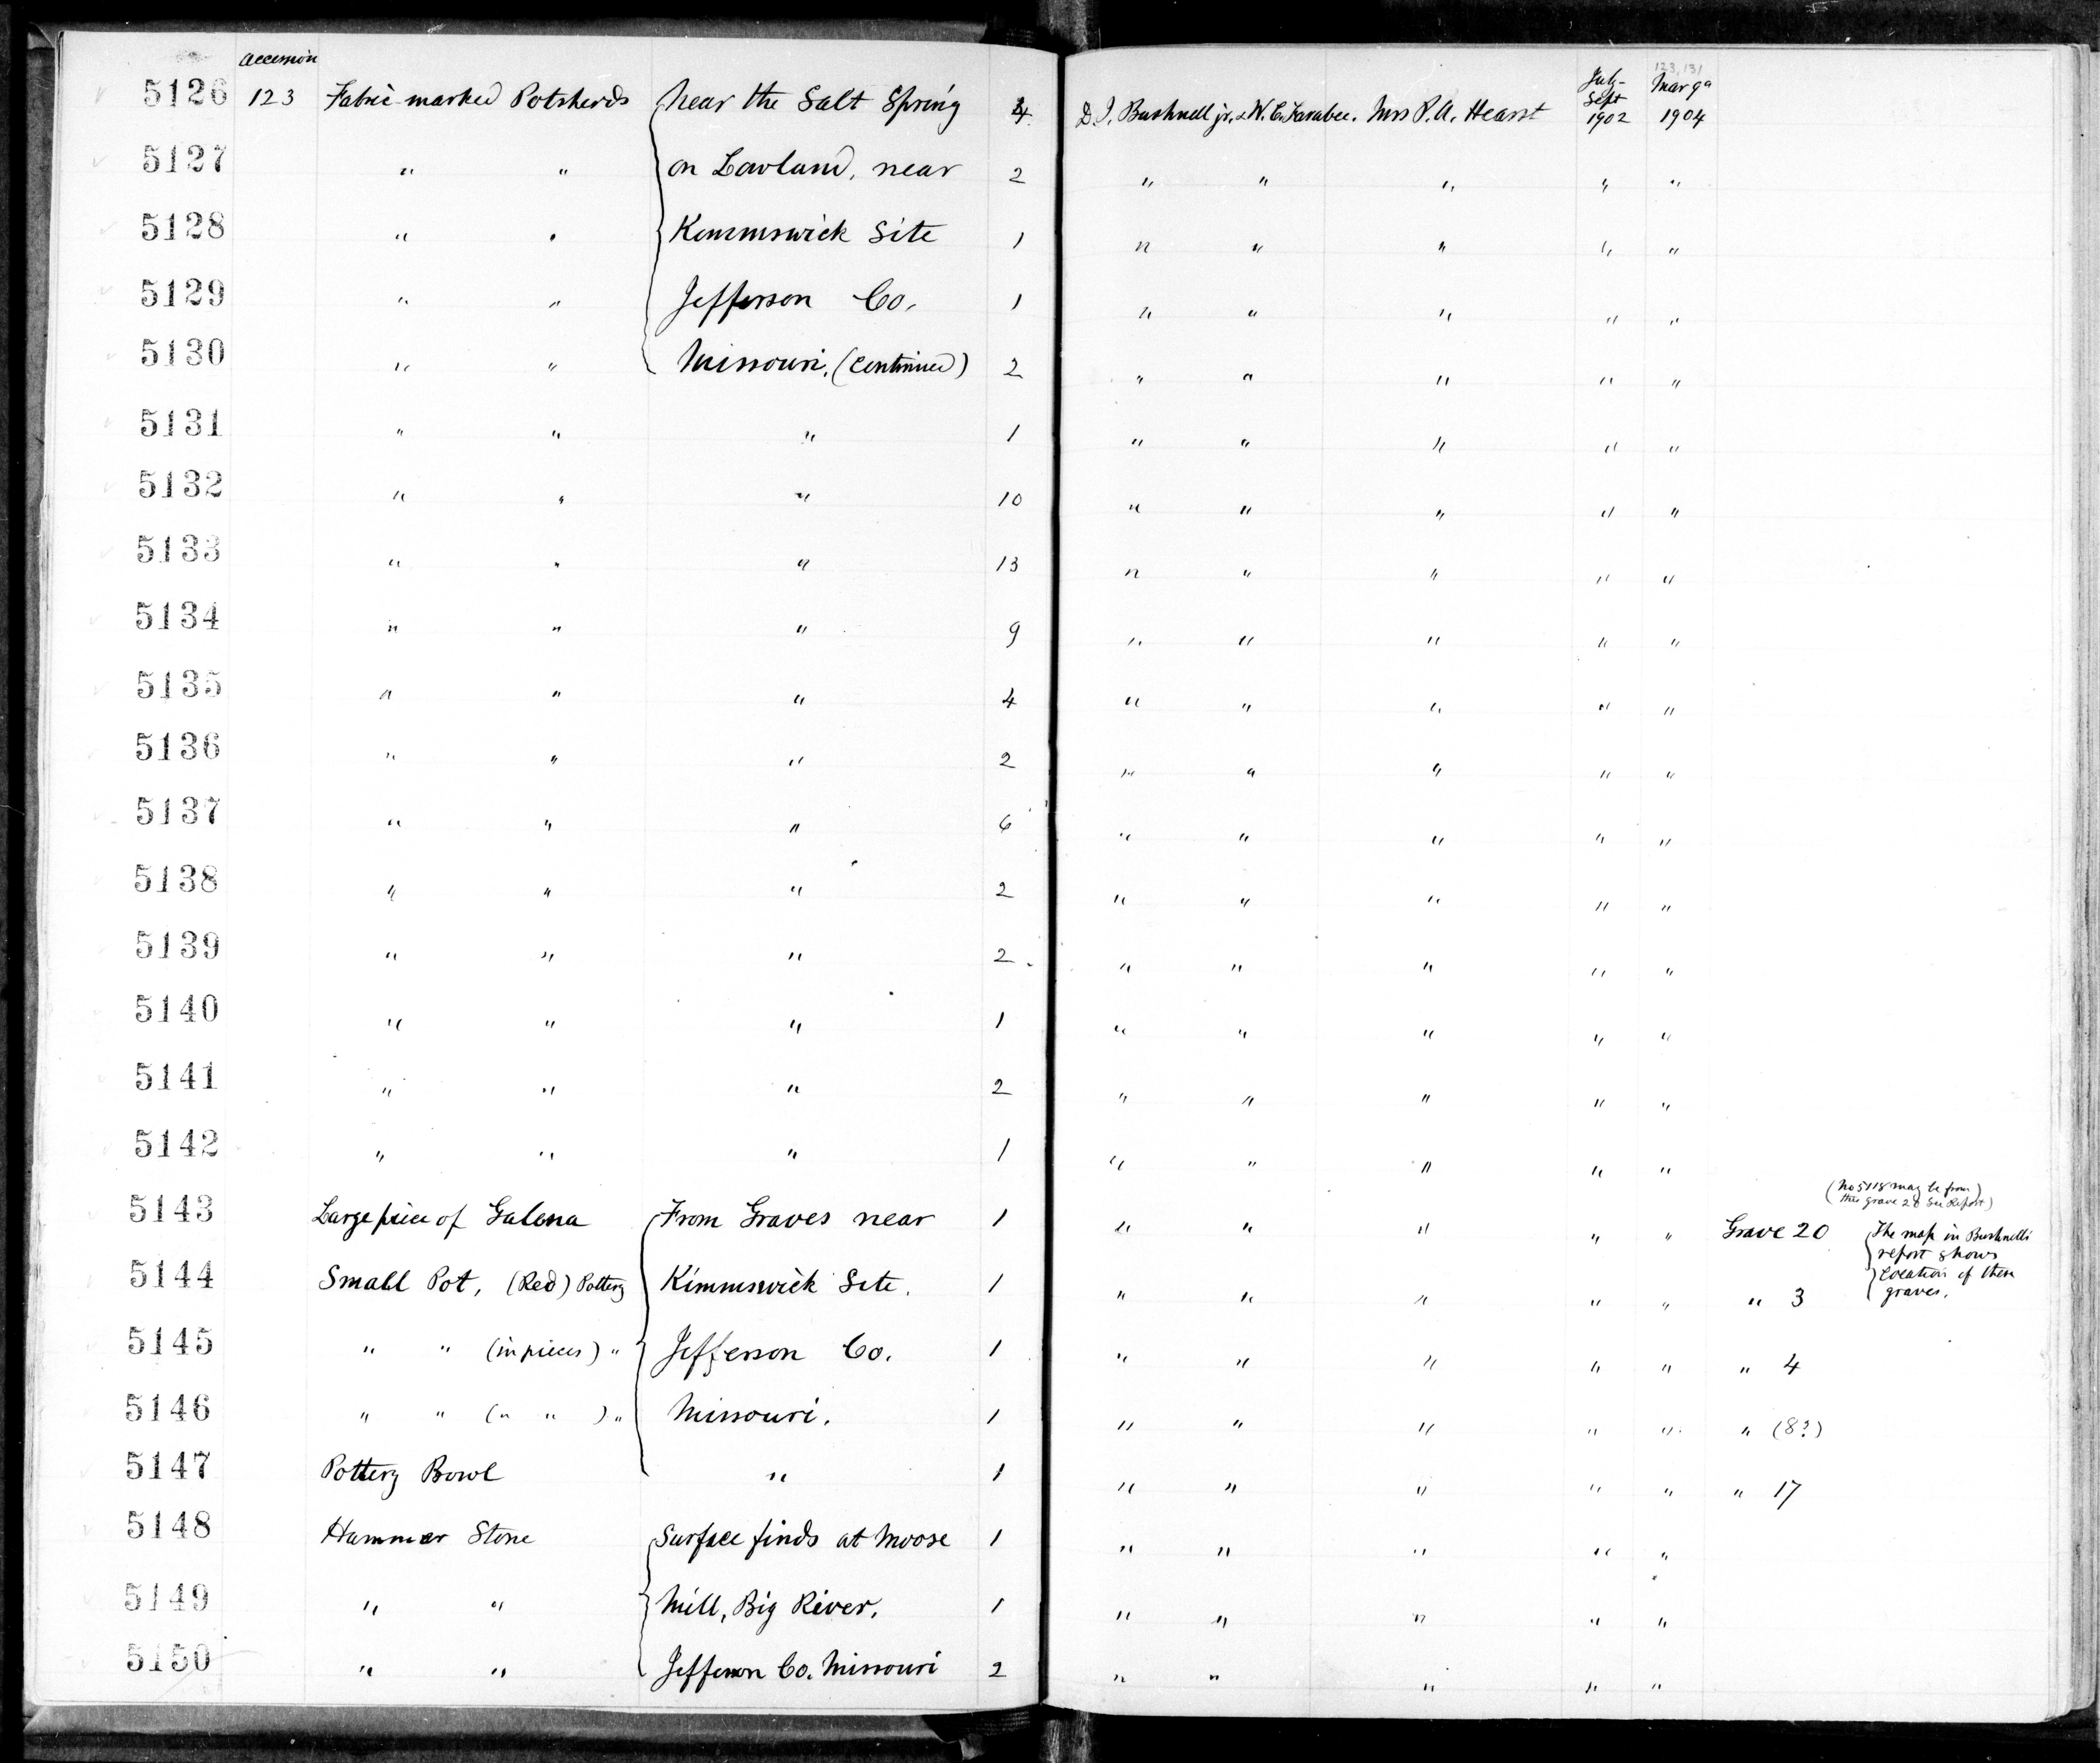 accession
123, 131
5126 123 Fabric-marked Potsherds Near the Salt Spring 4 D. I. Bushnell jr. & W. C. Farabee. Mrs P. A. Hearst July- Sept 1902 Mar 9a 1904
5127 " " on Lowland, near 2 " " " " "
5128 " " Kimmswick Site 1 " " " " "
5129 " " Jefferson Co. 1 " " " " "
5130 " " Missouri. (continued) 2 " " " " "
5131 " " " 1 " " " " "
5132 " " " 10 " " " " "
5133 " " " 13 " " " " "
5134 " " " 9 " " " " "
5135 " " " 4 " " " " "
5136 " " " 2 " " " " "
5137 " " " 6 " " " " "
5138 " " " 2 " " " " "
5139 " " " 2 " " " " "
5140 " " " 1 " " " " "
5141 " " " 2 " " " " "
5142 " " " 1 " " " " "
(No 5118 may be from)
this grave 20 See Report)
5143 Large piece of Galena From Graves near 1 " " " " " Grave 20
The map in Bushnell's
report shows
location of these
graves.
5144 Small Pot, (Red) Pottery Kimmswick Site. 1 " " " " " " 3
5145 " " (in pieces) " Jefferson Co. 1 " " " " " " 4
5146 " " ( " " ) " Missouri. 1 " " " " " " (8?)
5147 Pottery Bowl " 1 " " " " " " 17
5148 Hammer Stone Surface finds at Moose 1 " " " " "
5149 " " Mill, Big River. 1 " " " " "
5150 " " Jefferson Co. Missouri 2 " " " " "